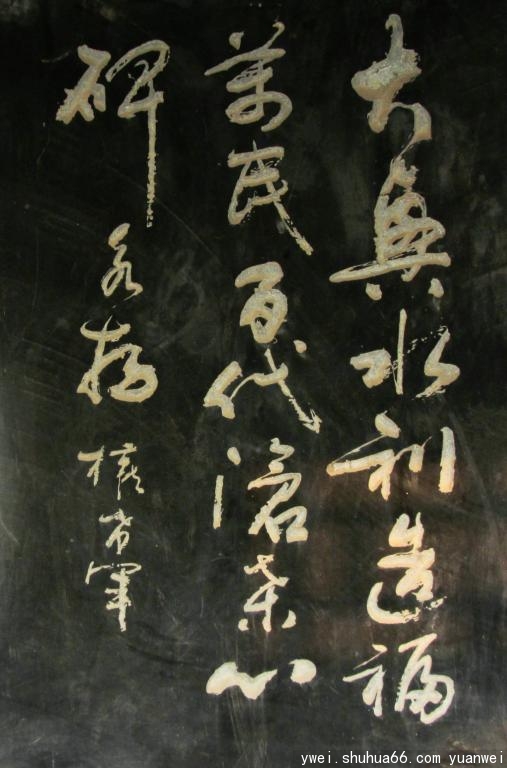 大興水利造福
萬民百代滄桑心
碑永存
ywei.shuhua66.com yuanwei